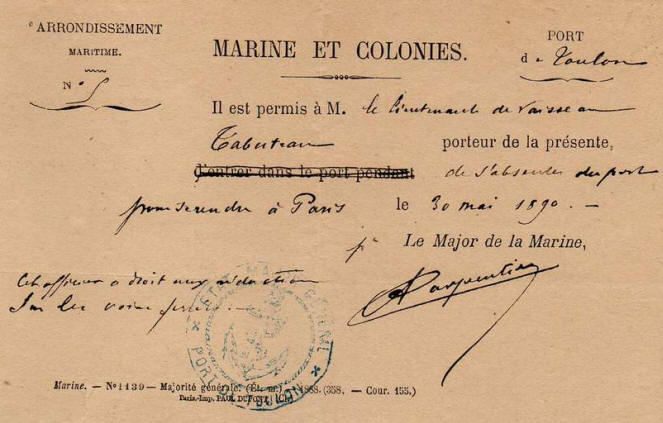 e ARRONDISSEMENT
MARITIME.
N° 5
MARINE ET COLONIES.
PORT
de Toulon
Il est permis à M. le lieutenant de vaisseau
Tabuteau porteur de la présente,
d'entrer dans le port pendant de s'absenter du port
pour se rendre à Paris le 30 mai 1890.-
pr Le Major de la Marine,
Cet officier a droit aux réduction
sur les voies ferrées.
ÉTAT MAJOR GÉNÉRAL
PORT DE TOULON
Marine. — N° 1139 — Majorité générale. (Ét. m.) — 1888. (358. — Cour. 155.)
Paris.-Imp. PAUL DUPONT (Cl.)